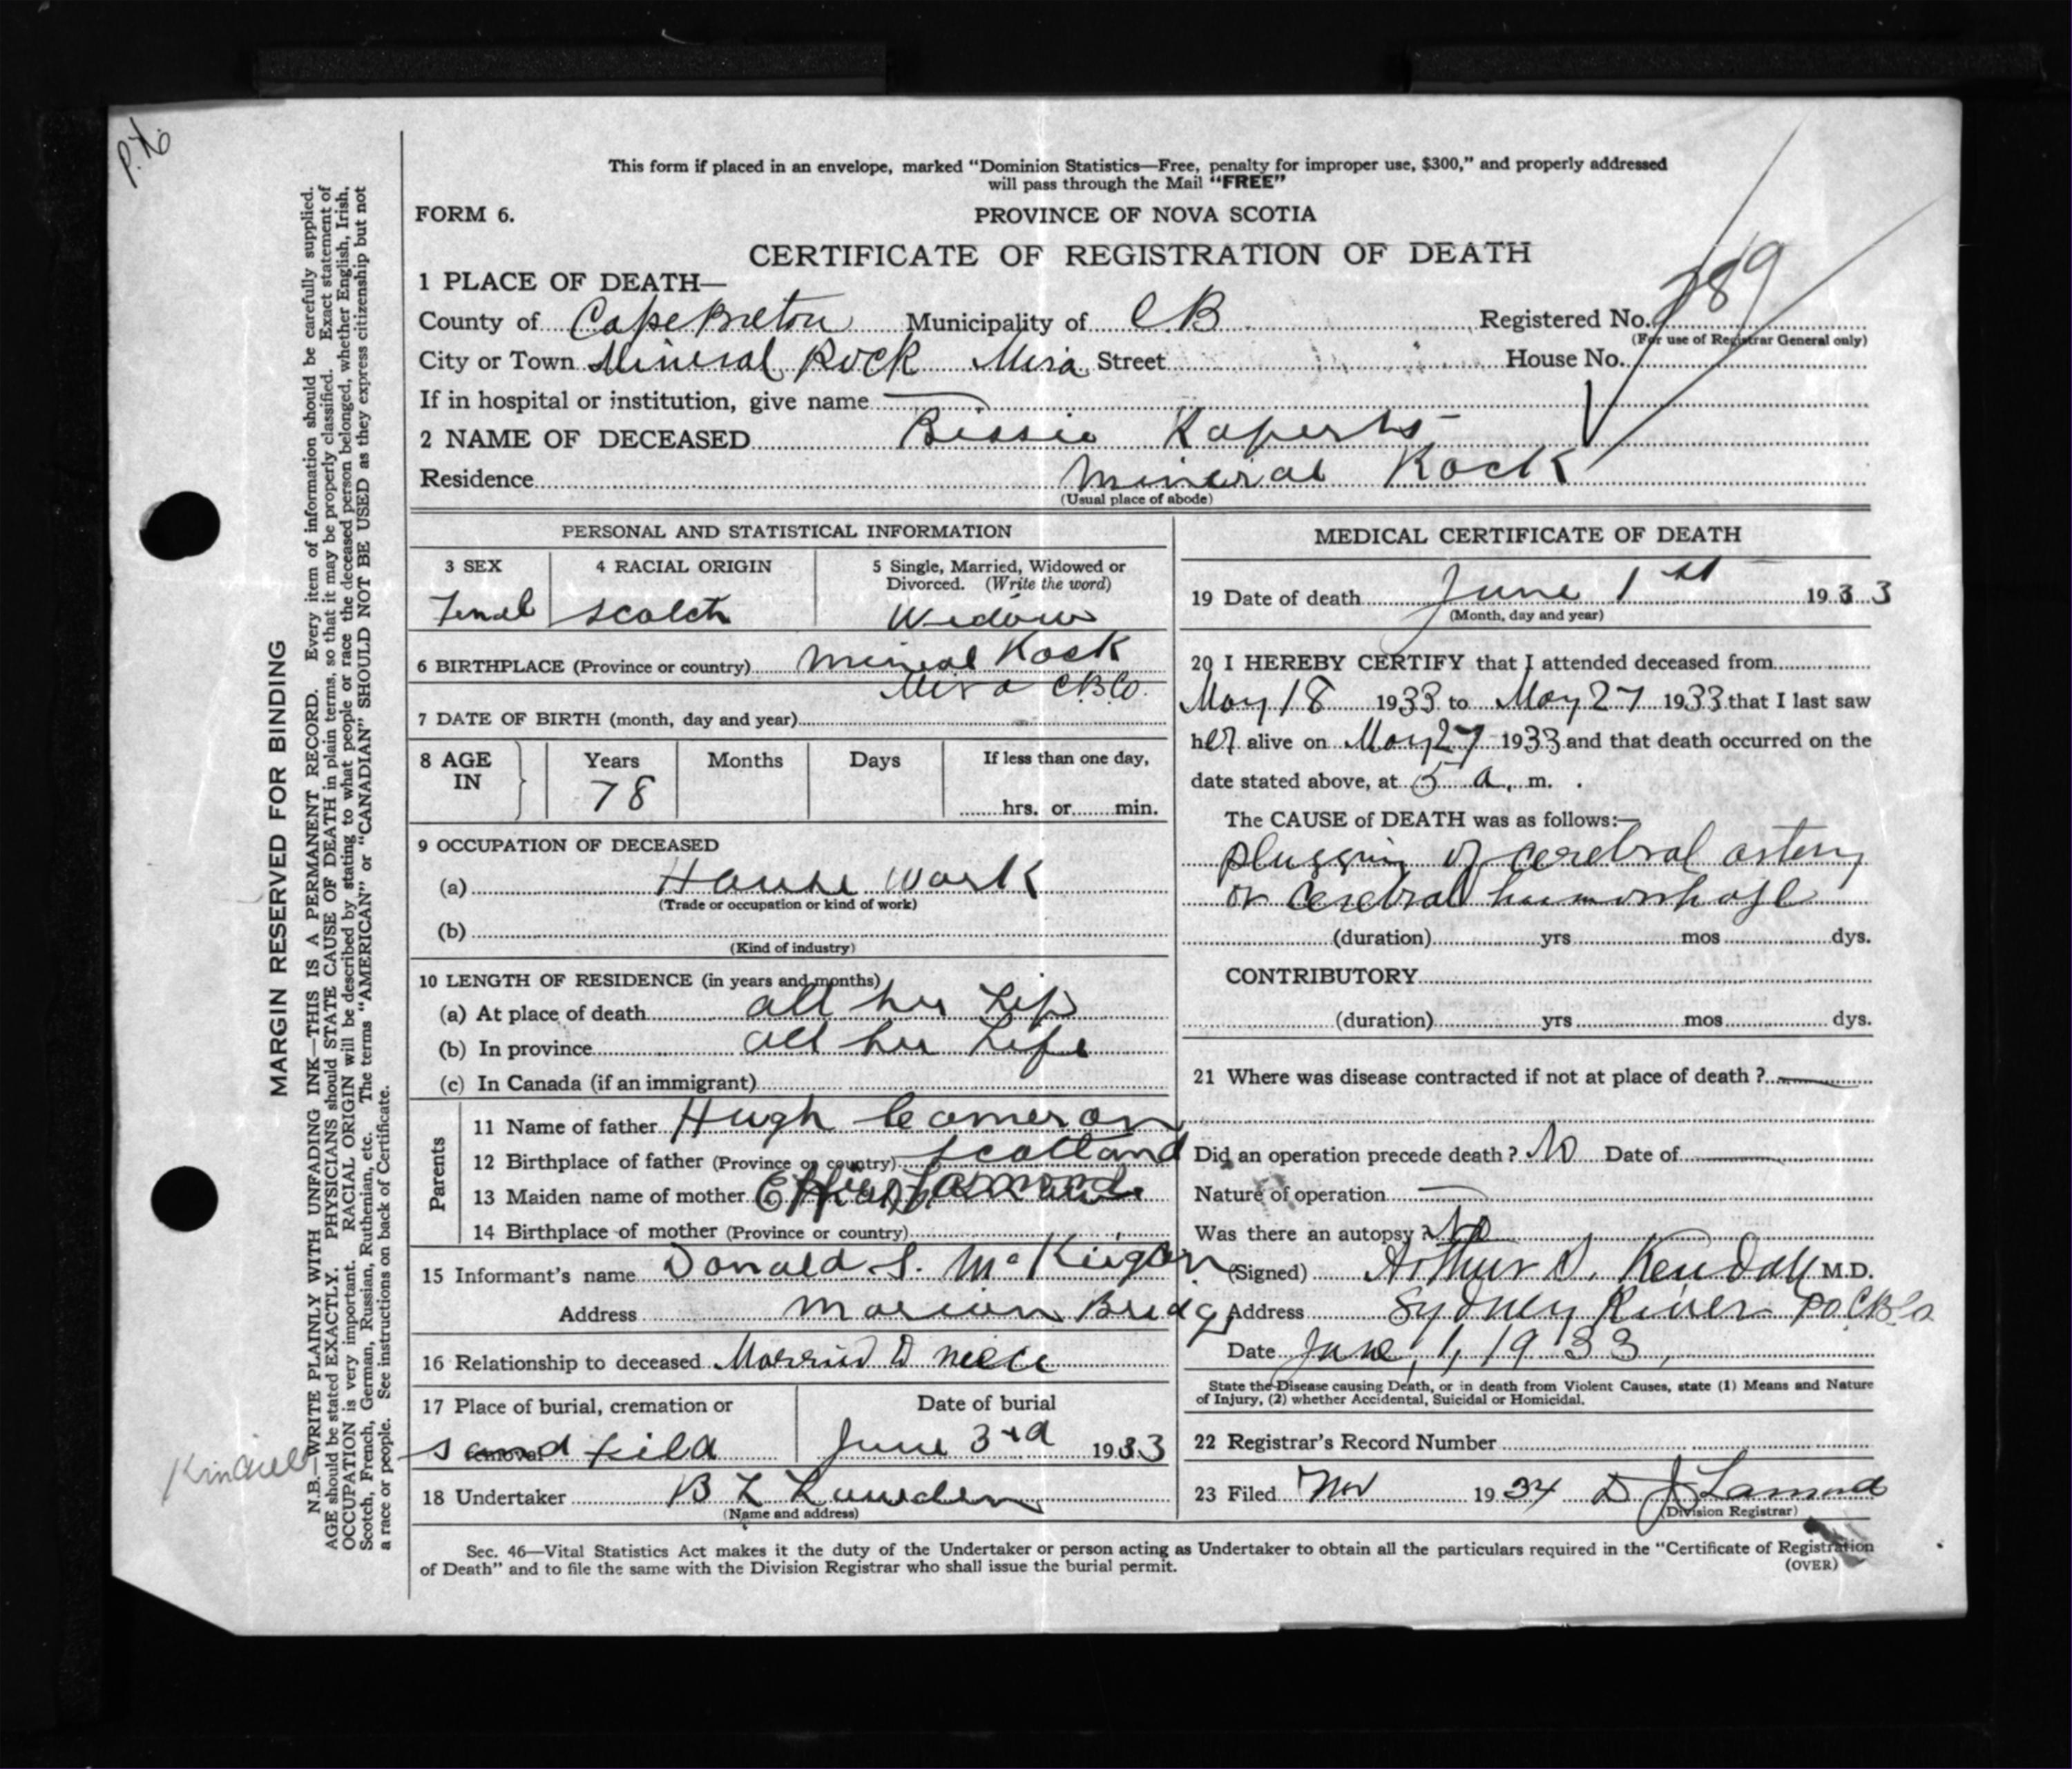 P.H.
This form if placed in an envelope, marked “Dominion Statistics—Free, penalty for improper use, $300,” and properly addressed
will pass through the Mail “FREE”
FORM 6.
PROVINCE OF NOVA SCOTIA
CERTIFICATE OF REGISTRATION OF DEATH
1 PLACE OF DEATH—
County of Cape Breton Municipality of C.B. Registered No. 789
(For use of Registrar General only)
City or Town Mineral Rock Mira Street House No.
If in hospital or institution, give name
2 NAME OF DECEASED Bessie
Residence Mineral Rock
(Usual place of abode)
PERSONAL AND STATISTICAL INFORMATION
3 SEX
Femal
4 RACIAL ORIGIN
scotch
5 Single, Married, Widowed or
Divorced. (Write the word)
Widow
6 BIRTHPLACE (Province or country) Mineral Rock
Mira C.B.Co.
7 DATE OF BIRTH (month, day and year)
8 AGE IN
Years
78
Months
Days
If less than one day,
hrs. or min.
9 OCCUPATION OF DECEASED
(a) House Work
(Trade or occupation or kind of work)
(b)
(Kind of industry)
10 LENGTH OF RESIDENCE (in years and months)
(a) At place of death all her Life
(b) In province all her Life
(c) In Canada (if an immigrant)
Parents
11 Name of father Hugh Cameron
12 Birthplace of father (Province or country) Scotland
13 Maiden name of mother Effie Lamond
14 Birthplace of mother (Province or country)
15 Informant’s name Donald S. McKeigan
Address Marion Bridg
16 Relationship to deceased Married D niece
17 Place of burial, cremation or
removal sand field
Date of burial
June 3rd 1933
18 Undertaker B L
(Name and address)
MEDICAL CERTIFICATE OF DEATH
19 Date of death June 1st 1933
(Month, day and year)
20 I HEREBY CERTIFY that I attended deceased from
May 18 1933 to May 27 1933 that I last saw
her alive on May 27 1933 and that death occurred on the
date stated above, at 5 a. m.
The CAUSE of DEATH was as follows:—
plugging of cerebral artery
or cerebral haemorrhage
(duration) yrs mos dys.
CONTRIBUTORY
(duration) yrs mos dys.
21 Where was disease contracted if not at place of death ?
Did an operation precede death ? No Date of
Nature of operation
Was there an autopsy ? No
(Signed) Arthur D. Kendall M.D.
Address Sydney River PO CB Co
Date June, 1, 1933,
State the Disease causing Death, or in death from Violent Causes, state (1) Means and Nature
of Injury, (2) whether Accidental, Suicidal or Homicidal.
22 Registrar’s Record Number
23 Filed Nov 1934 D J Lamond
(Division Registrar)
Sec. 46—Vital Statistics Act makes it the duty of the Undertaker or person acting as Undertaker to obtain all the particulars required in the “Certificate of Registration
of Death” and to file the same with the Division Registrar who shall issue the burial permit.
(OVER)
MARGIN RESERVED FOR BINDING
N.B.—WRITE PLAINLY WITH UNFADING INK—THIS IS A PERMANENT RECORD. Every item of information should be carefully supplied.
AGE should be stated EXACTLY. PHYSICIANS should STATE CAUSE OF DEATH in plain terms, so that it may be properly classified. Exact statement of
OCCUPATION is very important. RACIAL ORIGIN will be described by stating to what people or race the deceased person belonged, whether English, Irish,
Scotch, French, German, Russian, Ruthenian, etc. The terms “AMERICAN” or “CANADIAN” SHOULD NOT BE USED as they express citizenship but not
a race or people. See instructions on back of Certificate.